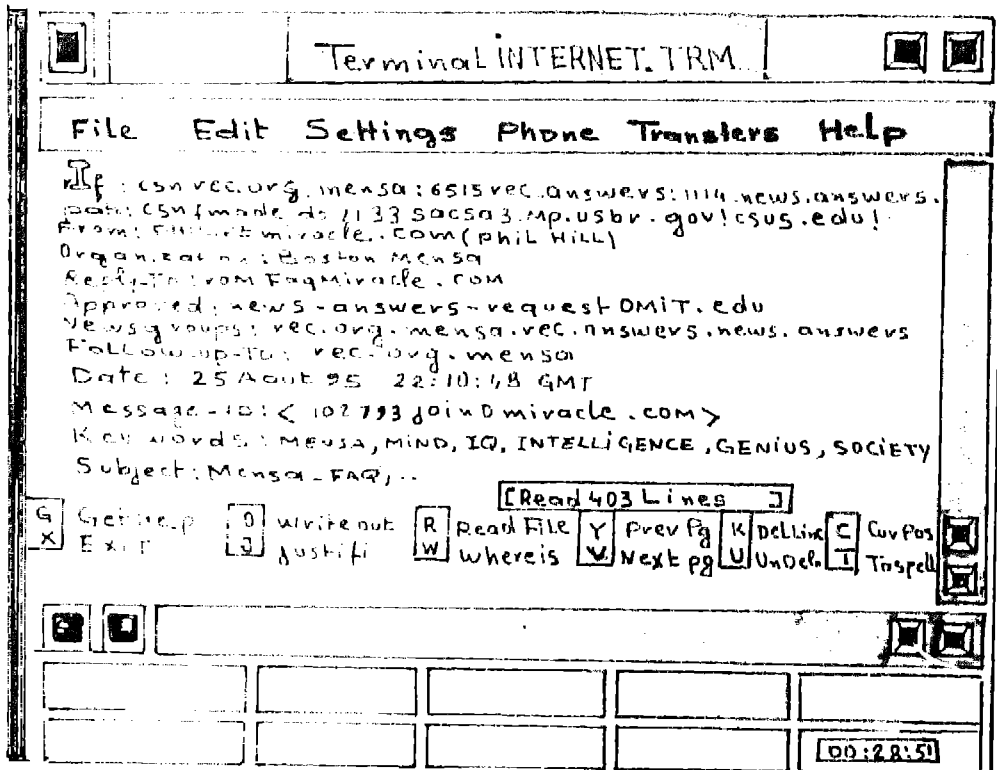 Terminal INTERNET.TRM
File Edit Settings Phone Translers Help
: csn rec.org.mensa:6515 rec.answers:1114.news.answers.
1133 sacsa3.mp.usbr.gov!csus.edu!
From: miracle.com (phil Hill)
Boston Mensa
FaqMiracle.com
Approved: news-answers-request OMIT.edu
Newsgroups: rec.org.mensa.rec.answers.news.answers
Follow.up-To: rec.org.mensa
Date: 25 Aout 95 22:10:48 GMT
Message-ID:< 102793joinDmiracle.com>
Key words: MENSA, MiND, IQ, INTELLiGENCE, GENiUS, SOCiETY
Subject: Mensa-FAQ,..
[Read 403 Lines ]
G Get help O write out R Read File Y Prev Pg K DelLine C Cur Pos
X ExiT J Justifi W Whereis V Next pg U UnDeln I Tospell
00:28:51